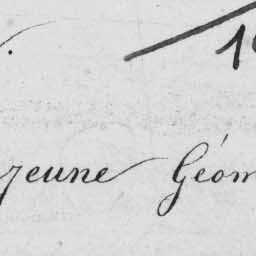 jeune Géom